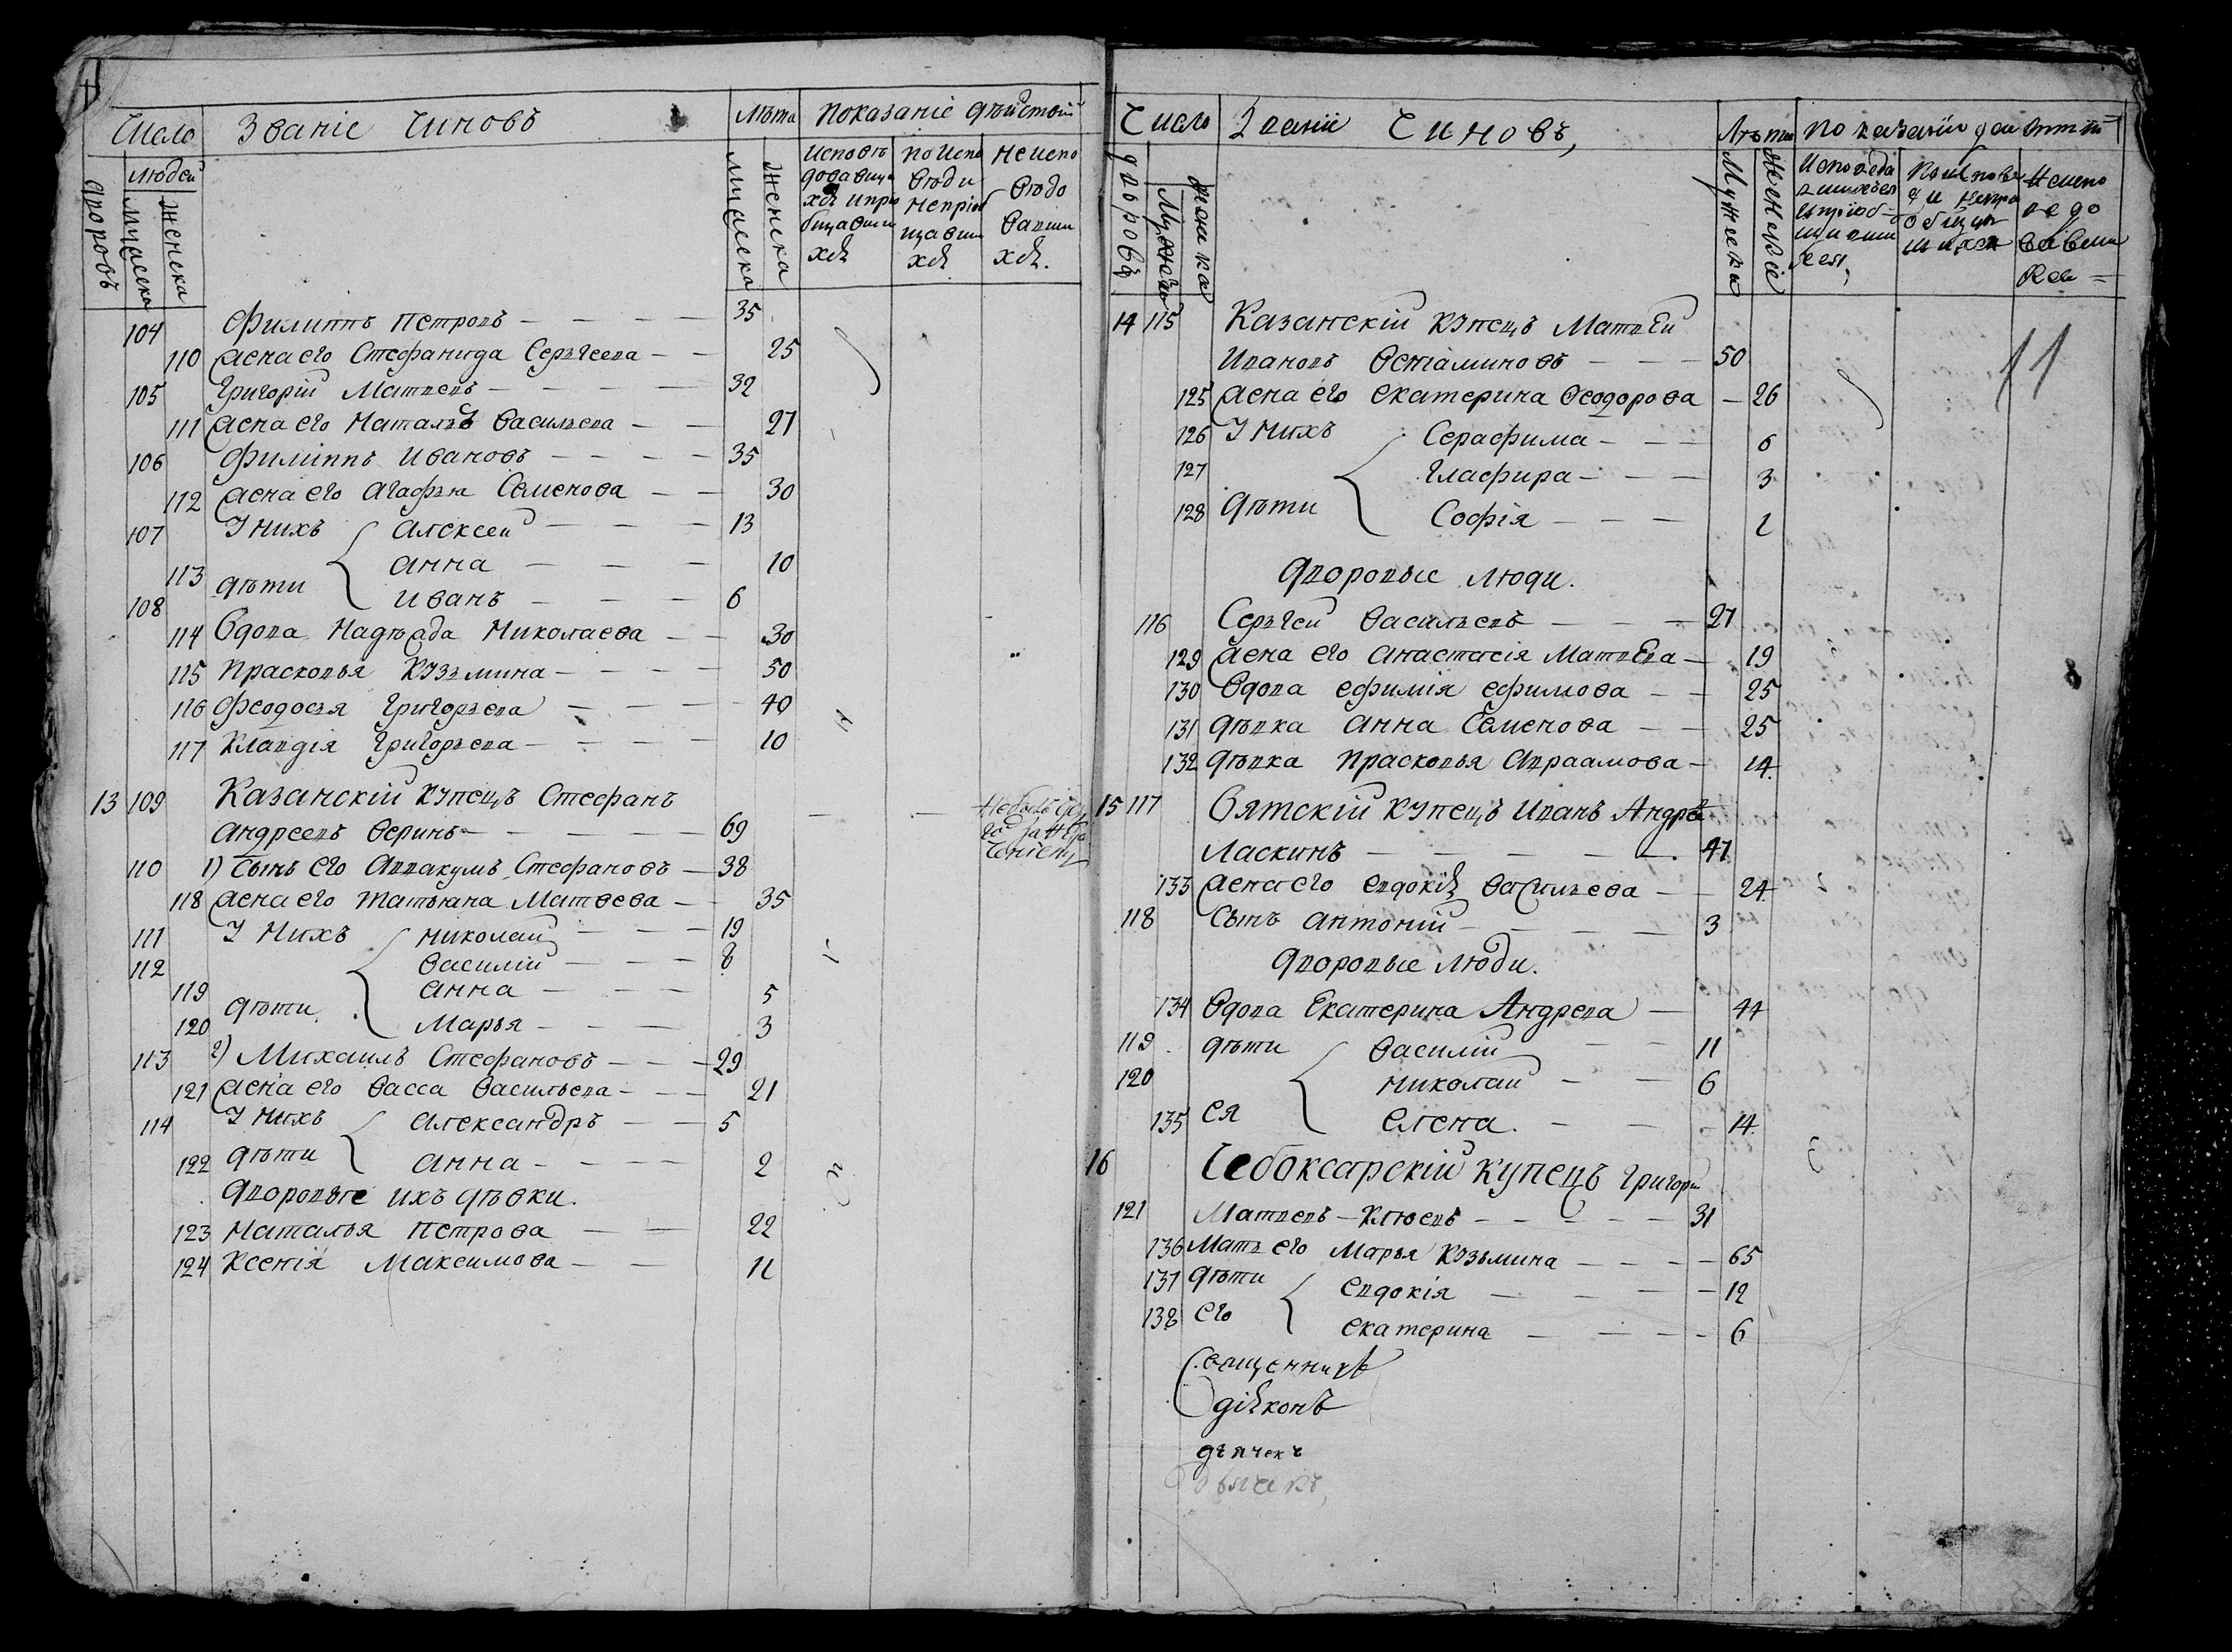 Число Званіе Чиновъ Лѣта Показаніе дѣйствій
Дворовъ Людей Мужеска Женска Мужеска Женска Исповѣдовавшихся и приобщавшихся По исповѣди неприобщавшихся Неисповѣдовавшихся
104 Филиппъ Петровъ — 35
110 Жена его Стефанида Сергѣева — 25
105 Григорій Матвевъ — 32
111 Жена его Наталья Васильева — 27
106 Филиппъ Ивановъ — 35
112 Жена его Агафья Семенова — 30
107 У нихъ Алексей — 13
113 дѣти Анна — 10
108 Иванъ — 6
114 Вдова Надѣжда Николаева — 30
115 Прасковья Кузьмина — 50
116 Феодосья Григорьева — 40
117 Клавдія Григорьева — 10
13 109 Казанскій купецъ Стефанъ
Андреевъ Веринъ — 69
110 1) Сынъ его Аввакумъ Стефановъ — 38
118 Жена его Татьяна Матвева — 35
111 У нихъ Николай — 19
112 Василій — 8
119 дѣти Анна — 5
120 Марья — 3
113 2) Михаилъ Стефановъ — 29
121 Жена его Васса Васильева — 21
114 У нихъ Александръ — 5
122 дѣти Анна — 2
Дворовые ихъ дѣвки.
123 Наталья Петрова — 22
124 Ксенія Максимова — 11
Число Званій Чиновъ, Лѣта
Дворовъ Мужеска Женска Мужеска
11
14 115 Казанскій купецъ Матвей
Ивановъ — 50
125 Жена его Екатерина Ѳеодорова — 26
126 У нихъ Серафима — 6
127 Гласфира — 3
128 дѣти Софія — 1
Дворовые люди.
116 Сергѣй Васильевъ — 27
129 Жена его Анастасія Матвева — 19
130 Вдова Ефимія Ефимова — 25
131 Дѣвка Анна Семенова — 25
132 Дѣвка Прасковья Авраамова — 14
15 117 Вятскій купецъ Иванъ Андрѣ
Ласкинъ — 47
133 Жена его Евдокія Васильева — 24
118 Сынъ Антоній — 3
Дворовые люди.
134 Вдова Екатерина Андрева — 44
119 дѣти Василій — 11
120 Николай — 6
135 ея Елена — 14
16 Чебоксарскій купецъ Григорій
121 Матвевъ — Клюевъ — 31
136 Мать его Марья Кузьмина — 65
137 дѣти Евдокія — 12
138 его Екатерина — 6
Священникъ
Діяконъ
Дьячекъ